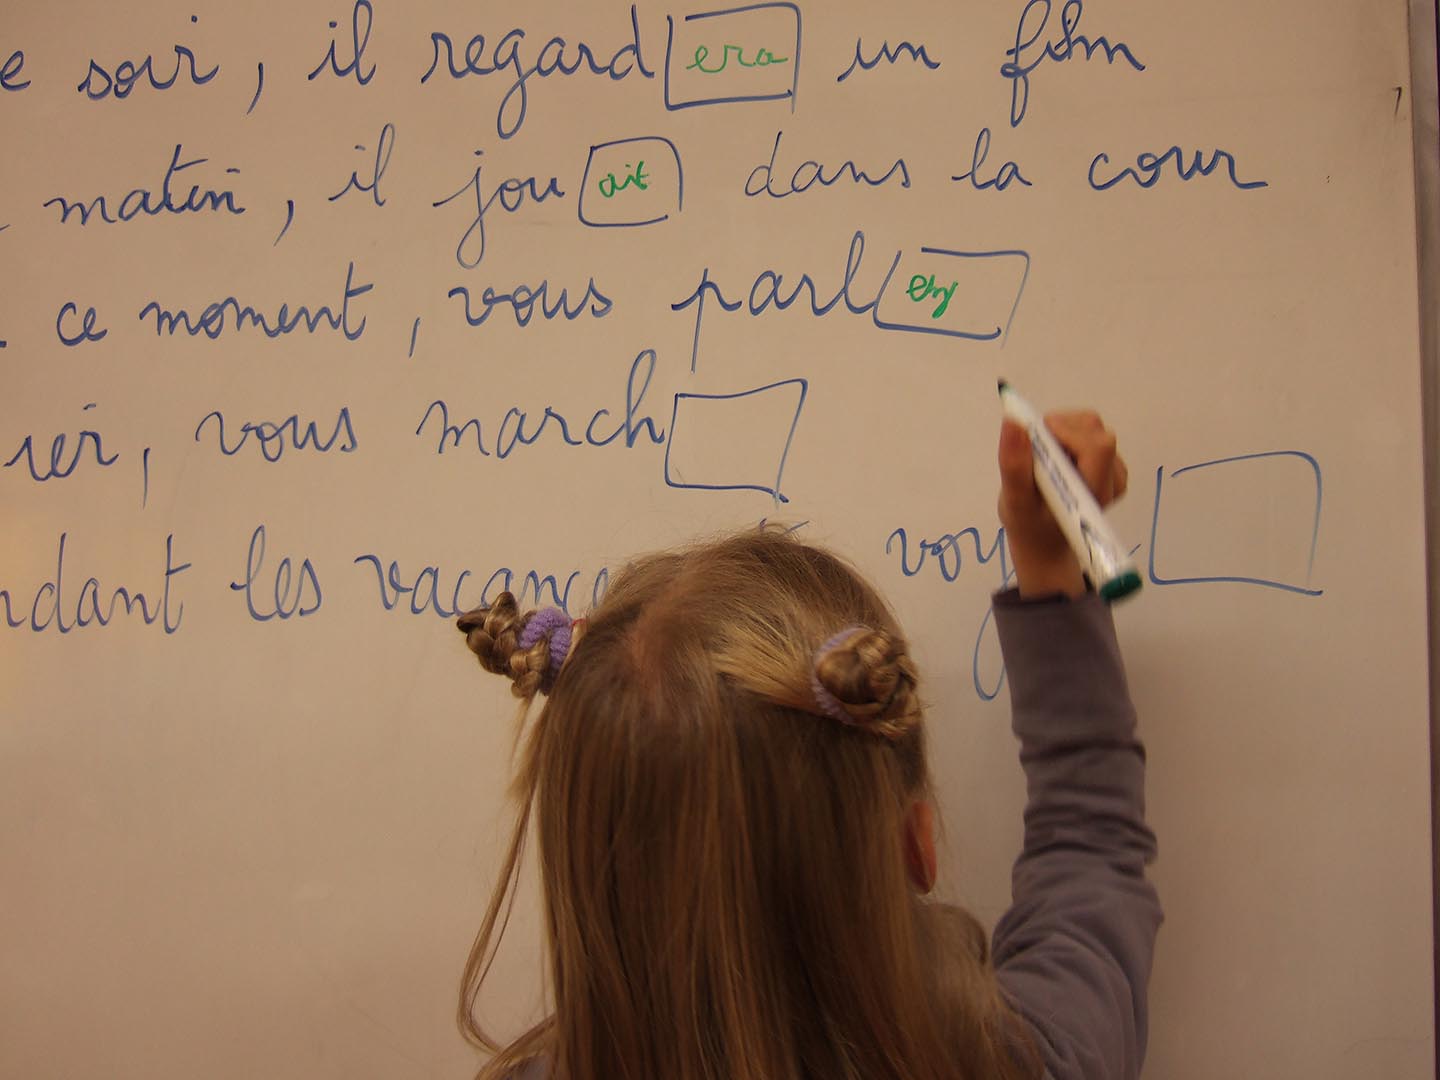 e soir, il regardera un film
matin, il jouait dans la cour
ce moment, vous parlez
ier, vous march
ndant les vacance voy